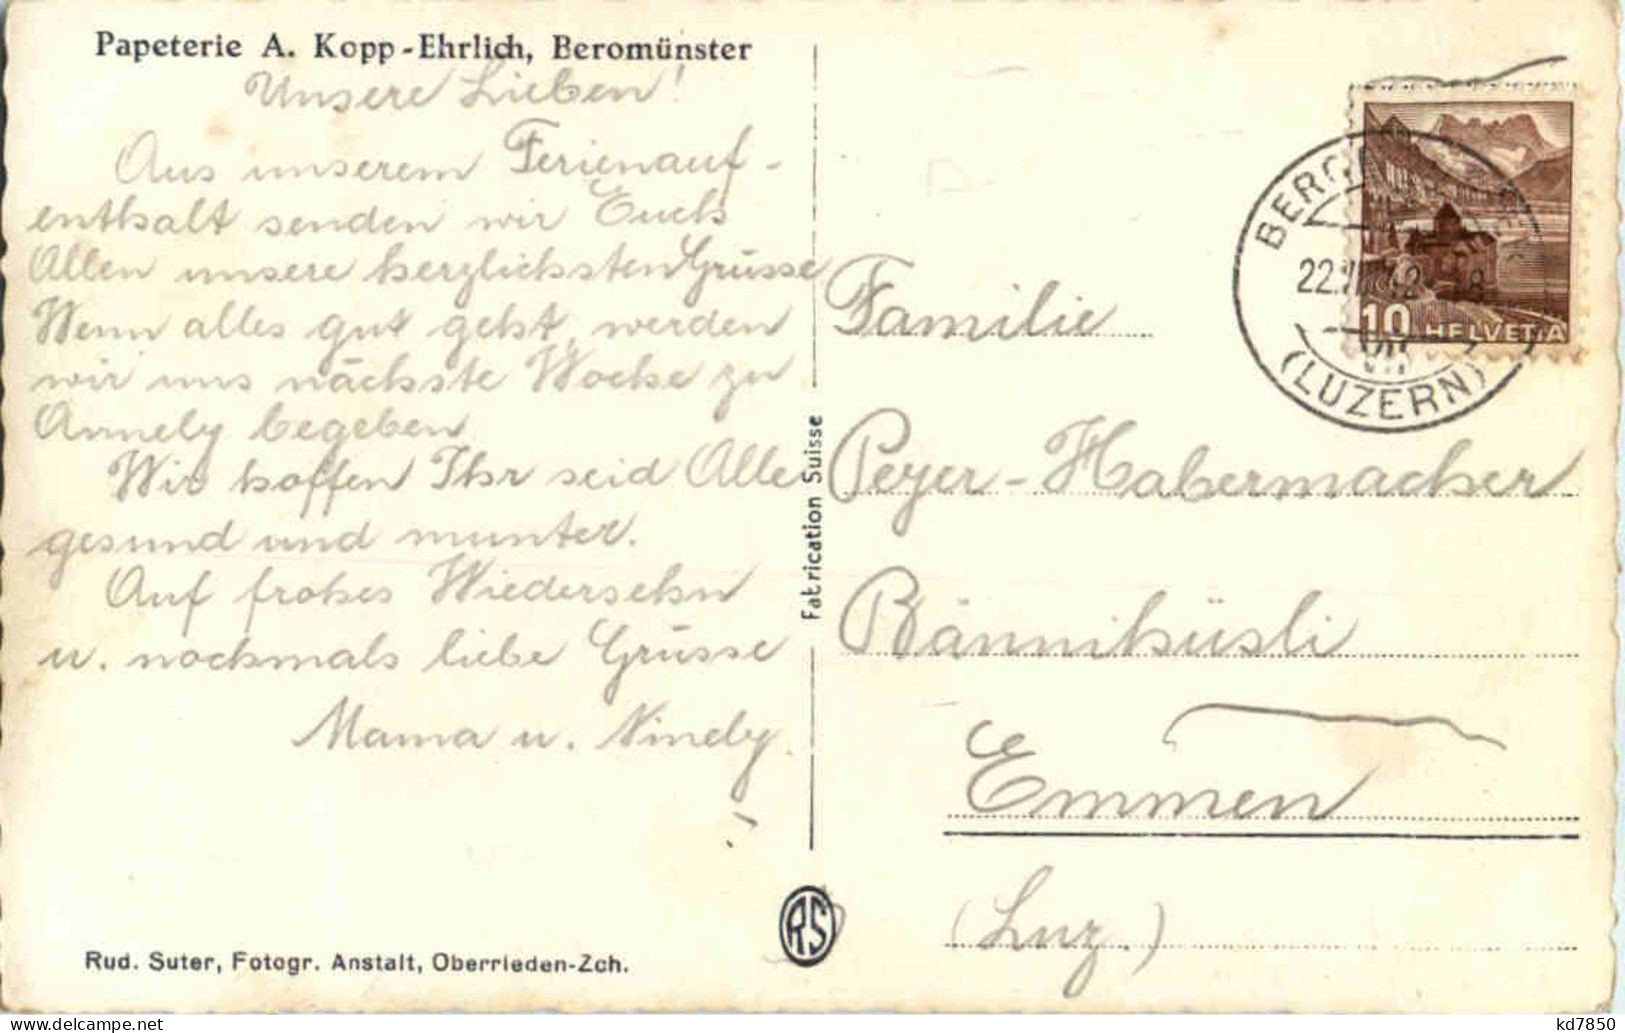 Papeterie A. Kopp-Ehrlich, Beromünster
Unsere Lieben!
Aus unserem Ferienauf-
enthalt senden wir Euch
Allen unsere herzlichsten Grüsse
Wenn alles gut geht, werden
wir uns nächste Woche zu
Annely begeben
Wir hoffen Ihr seid Alle
gesund und munter.
Auf frohes Wiedersehn
u. nochmals liebe Grüsse
Mama u. Ninely.
Rud. Suter, Fotogr. Anstalt, Oberrieden-Zch.
Fabrication Suisse
RS
22.
(LUZERN)
10 HELVETIA
Familie
Peyer-Habermacher
Rännihüsli
Emmen
(Luz.)
kd7850